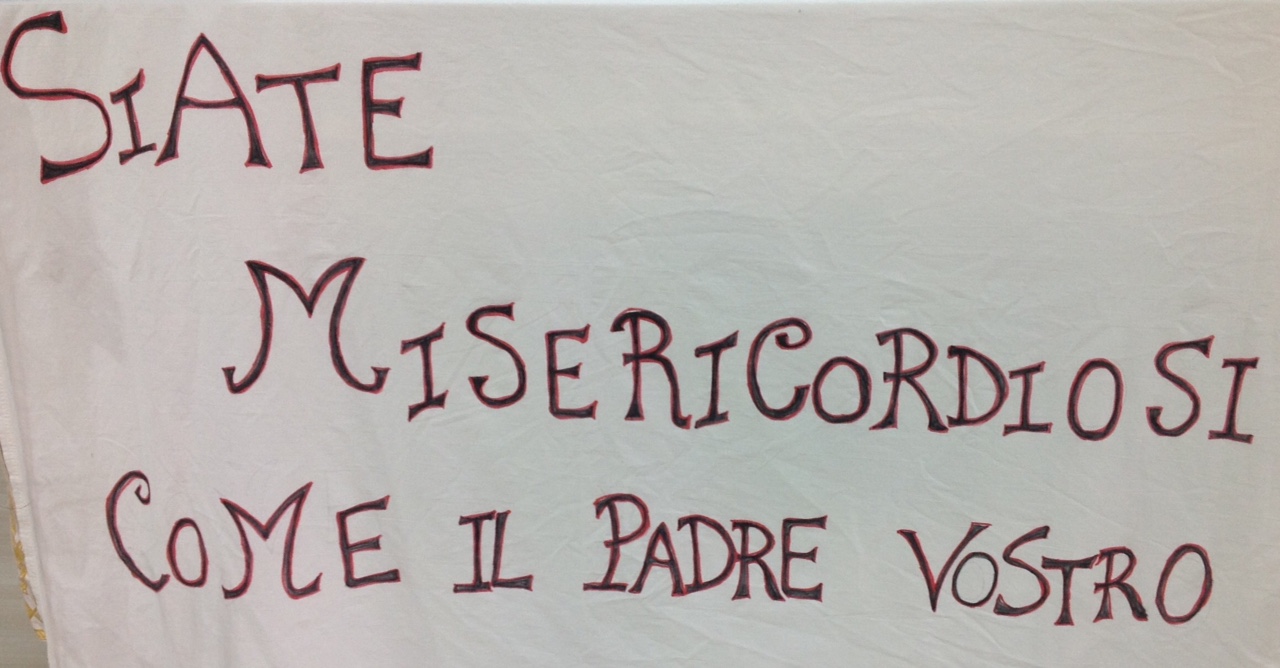 SIATE
MISERICORDIOSI
COME IL PADRE VOSTRO